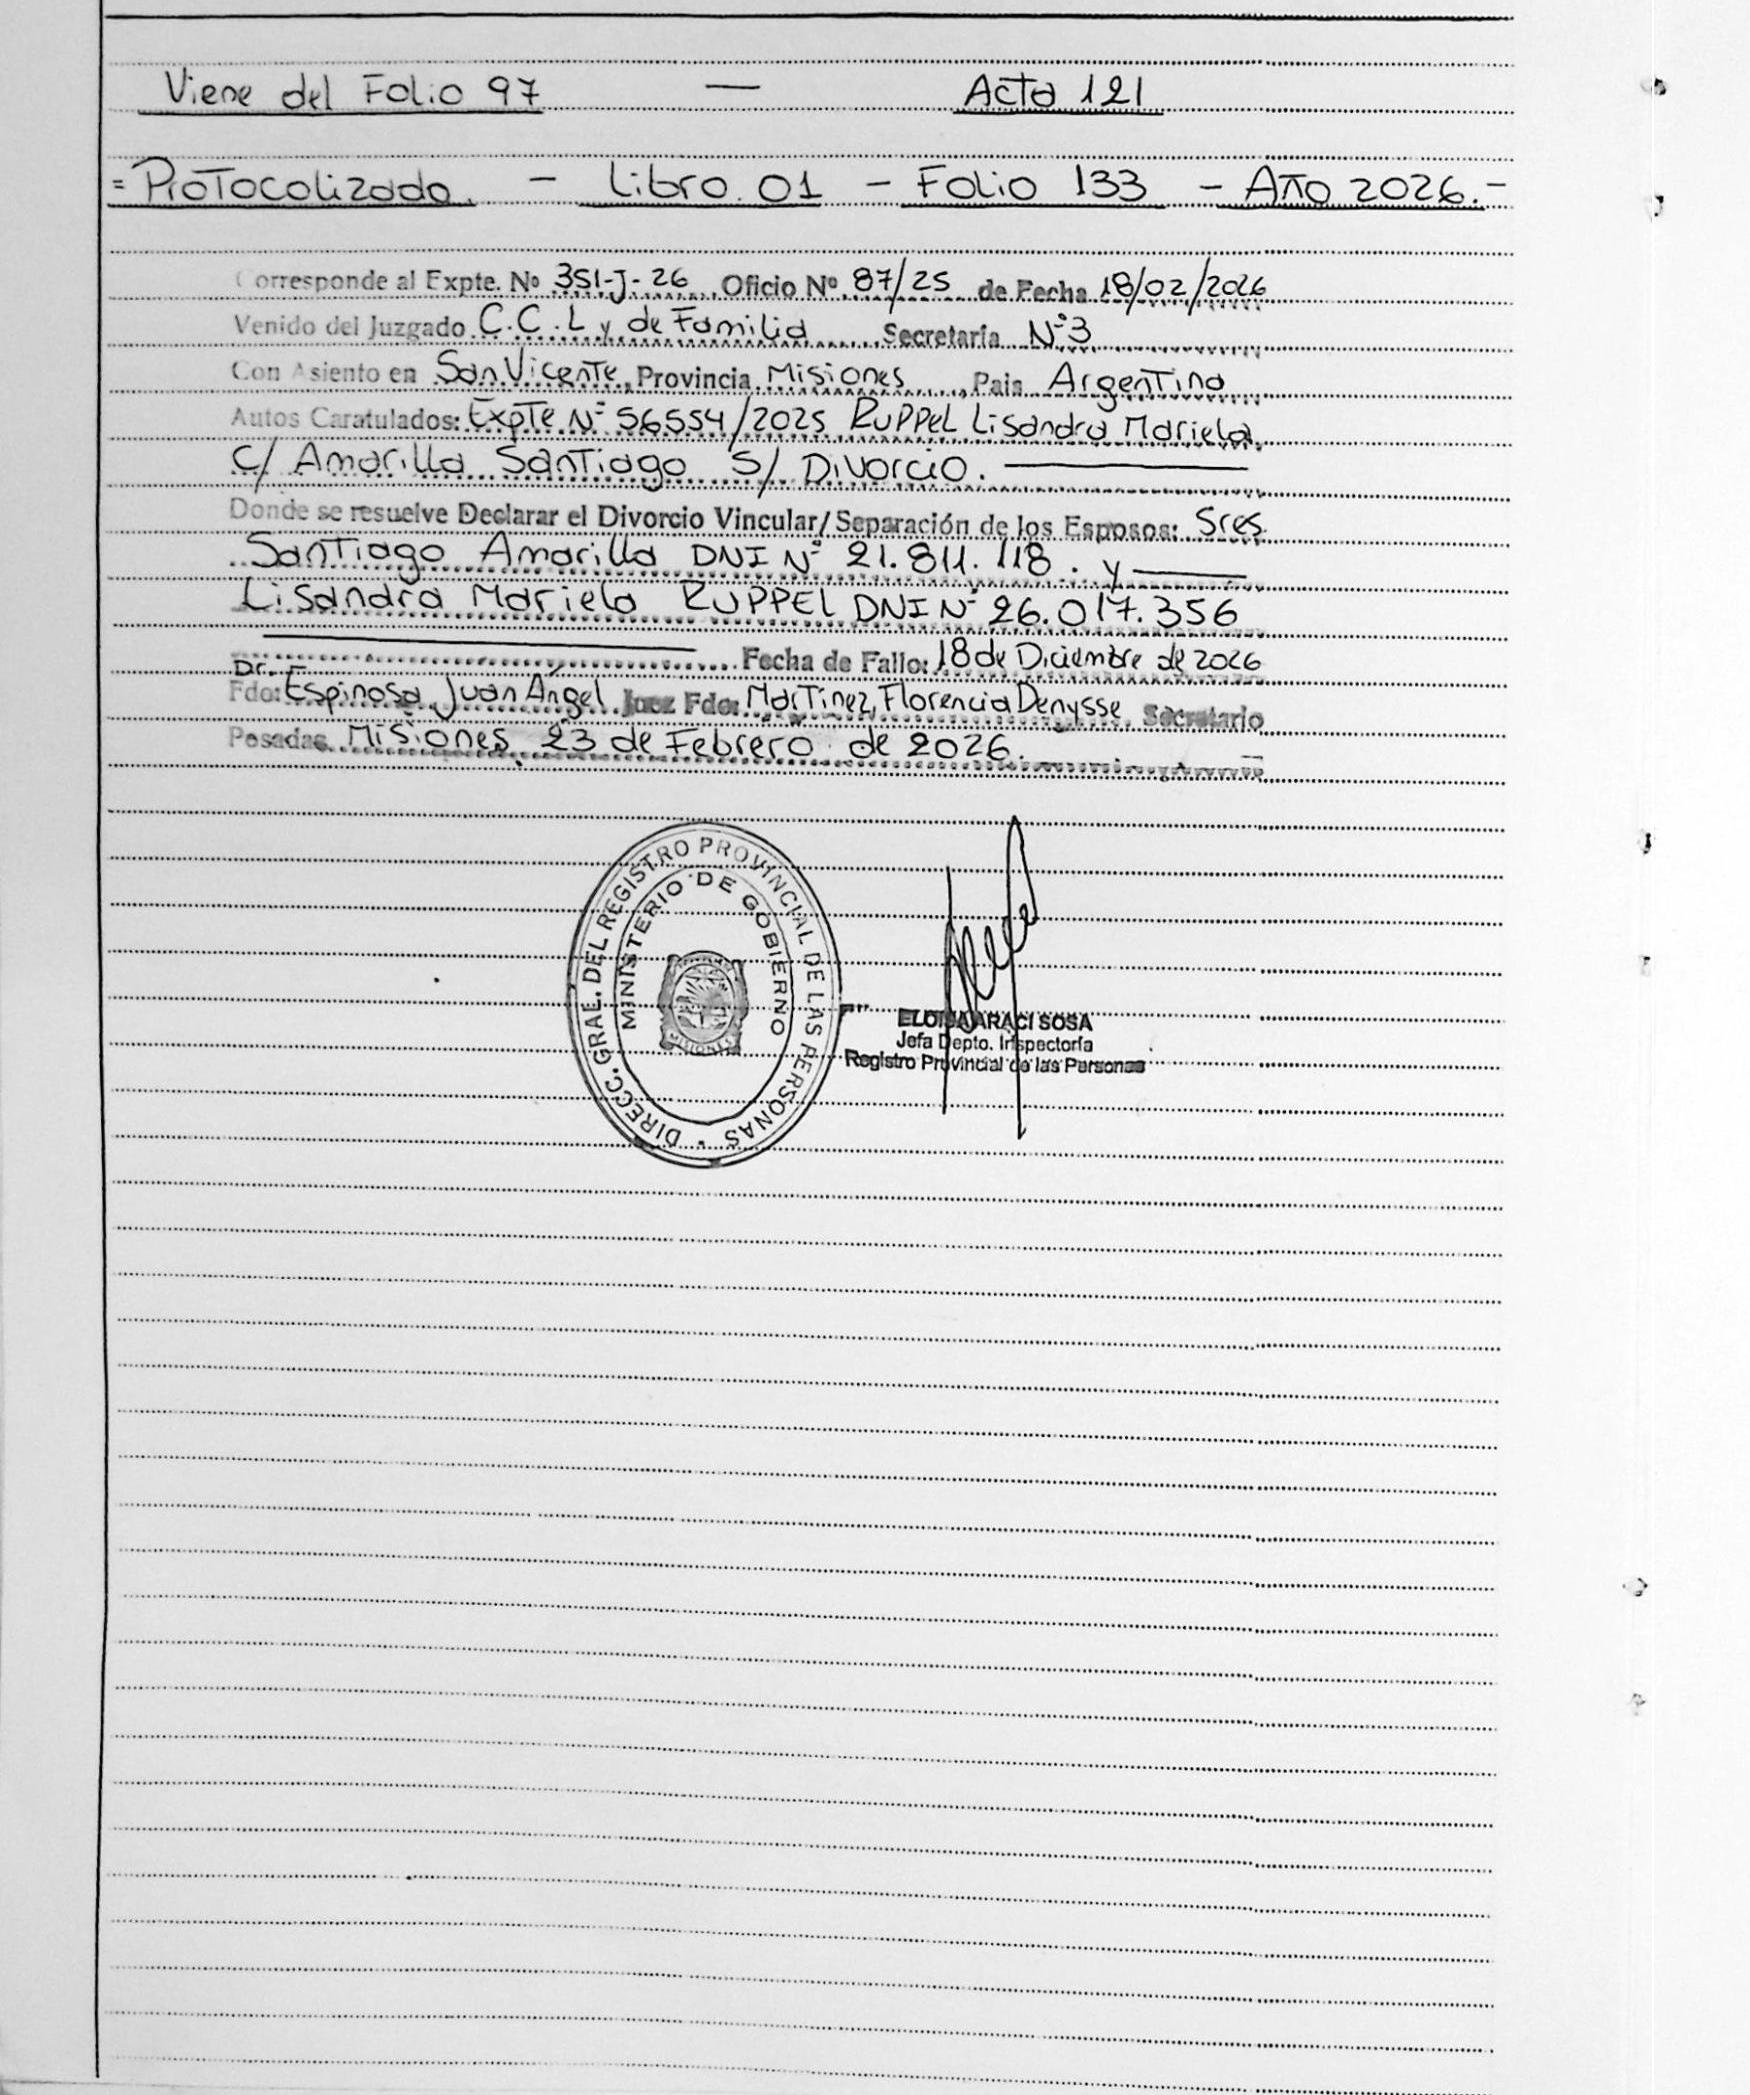 Viene del Folio 97 — Acta 121
= Protocolizado. - Libro. 01 - Folio 133 - Año 2026.-
Corresponde al Expte. Nº 351-J-26 Oficio Nº 87/25 de Fecha 18/02/2026
Venido del Juzgado C.C.L y de Familia Secretaría Nº3
Con Asiento en San Vicente, Provincia Misiones, Pais Argentina
Autos Caratulados: Expte Nº 56554/2025 Ruppel Lisandra Mariela
c/ Amarilla Santiago s/ Divorcio.
Donde se resuelve Declarar el Divorcio Vincular/Separación de los Esposos: Sres
Santiago Amarilla DNI Nº 21.811.118. y
Lisandra Mariela RUPPEL DNI Nº 26.017.356
Fecha de Fallo: 18 de Diciembre de 2026
Dr.
Fdo: Espinosa Juan Ángel Juez Fdo: Martinez, Florencia Denysse, Secretario
Posadas Misiones 23 de Febrero de 2026.
DIRECC. GRAL. DEL REGISTRO PROVINCIAL DE LAS PERSONAS
MINISTERIO DE GOBIERNO
MISIONES
ELOISA ARACI SOSA
Jefa Depto. Inspectoría
Registro Provincial de las Personas